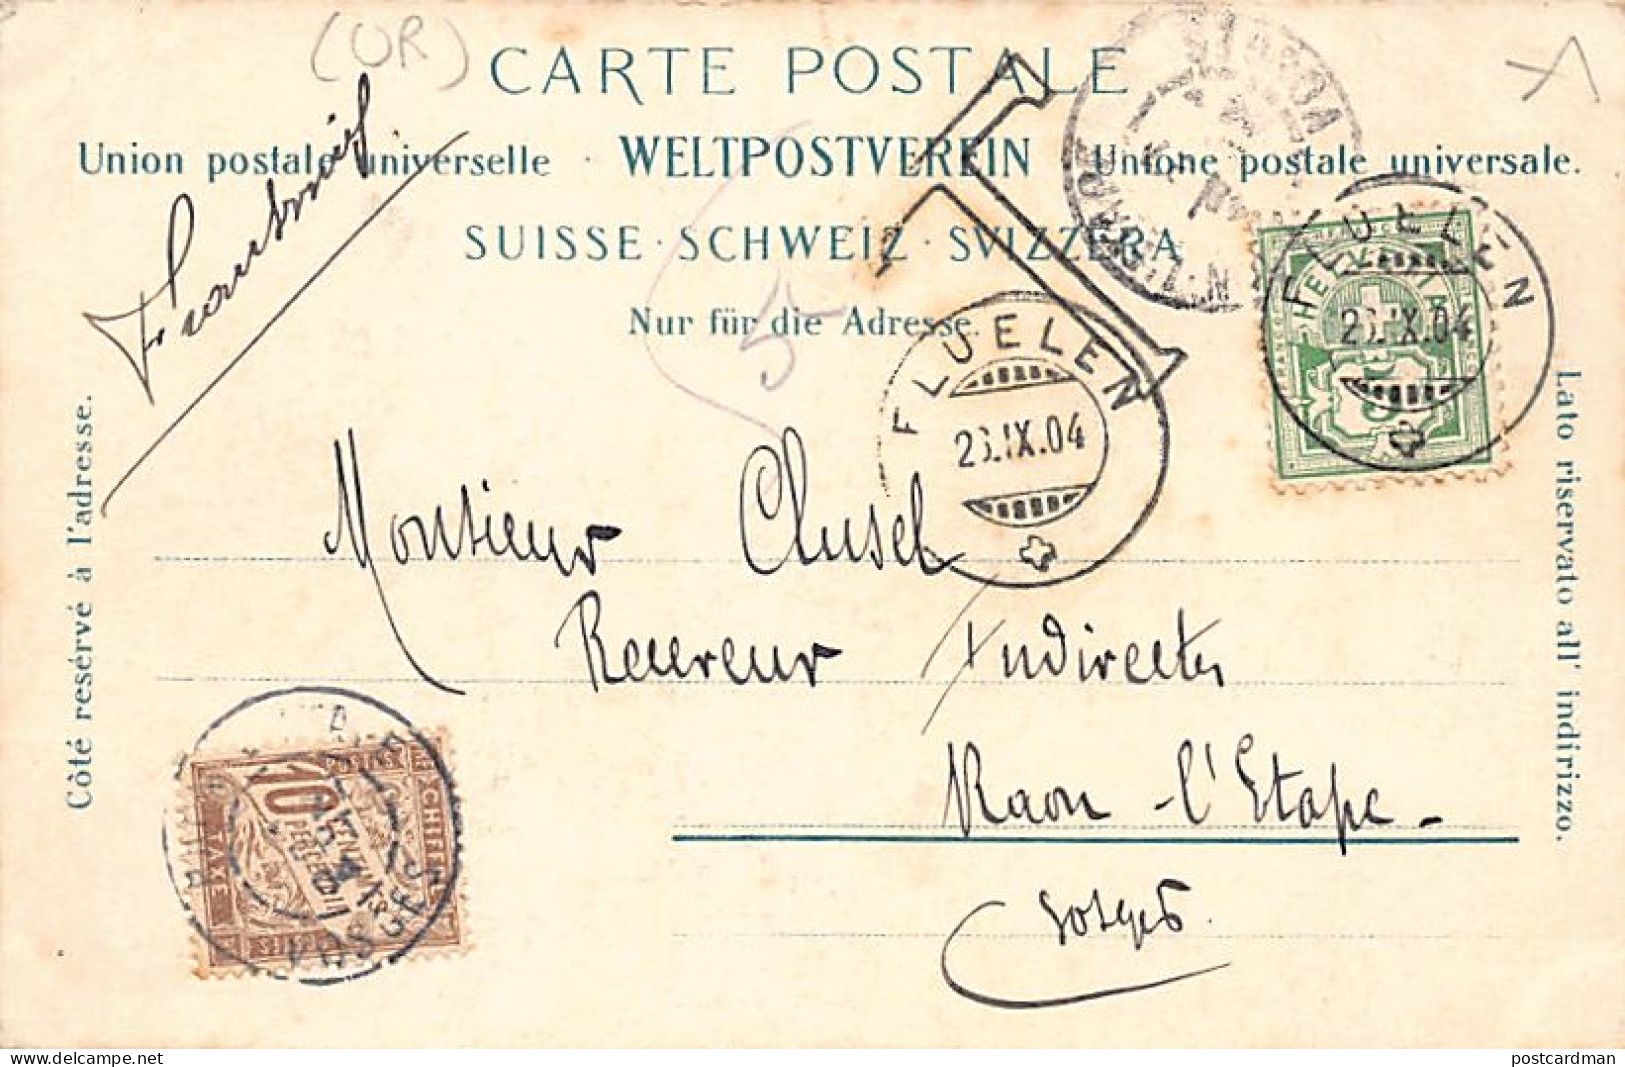 (UR)
CARTE POSTALE
Union postale universelle · WELTPOSTVEREIN · Unione postale universale.
SUISSE · SCHWEIZ · SVIZZERA
Nur für die Adresse.
Côté resérvé à l'adresse.
Lato riservato all' indirizzo.
T
5
FLUELEN
HELVETIA
FRANCO
5
FLUELEN
.IX.04
Monsieur Clusel
Receveur Indirectes
Raon-l'Etape-
Vosges.
CHIFFRE
10
CENTIMES
PERCEVOIR
TAXE
VOSGES
postcardman